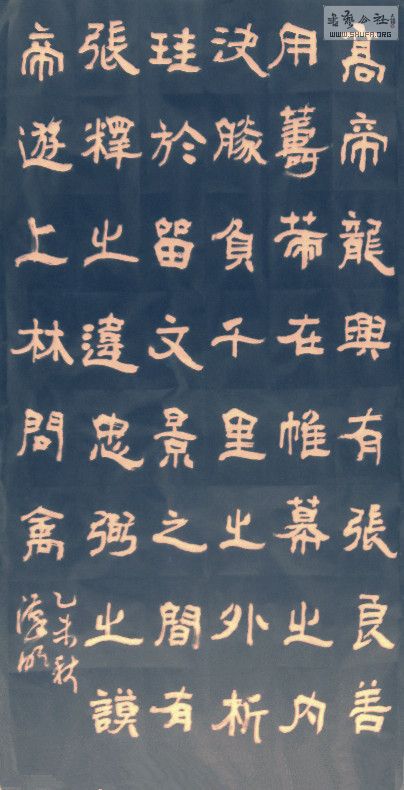 高帝龍興有張良善
用籌策在帷幕之內
決勝負千里之外析
珪於留文景之間有
張釋之建忠弼之謨
帝遊上林問禽
乙未秋
書藝公社
WWW.SHUFA.ORG